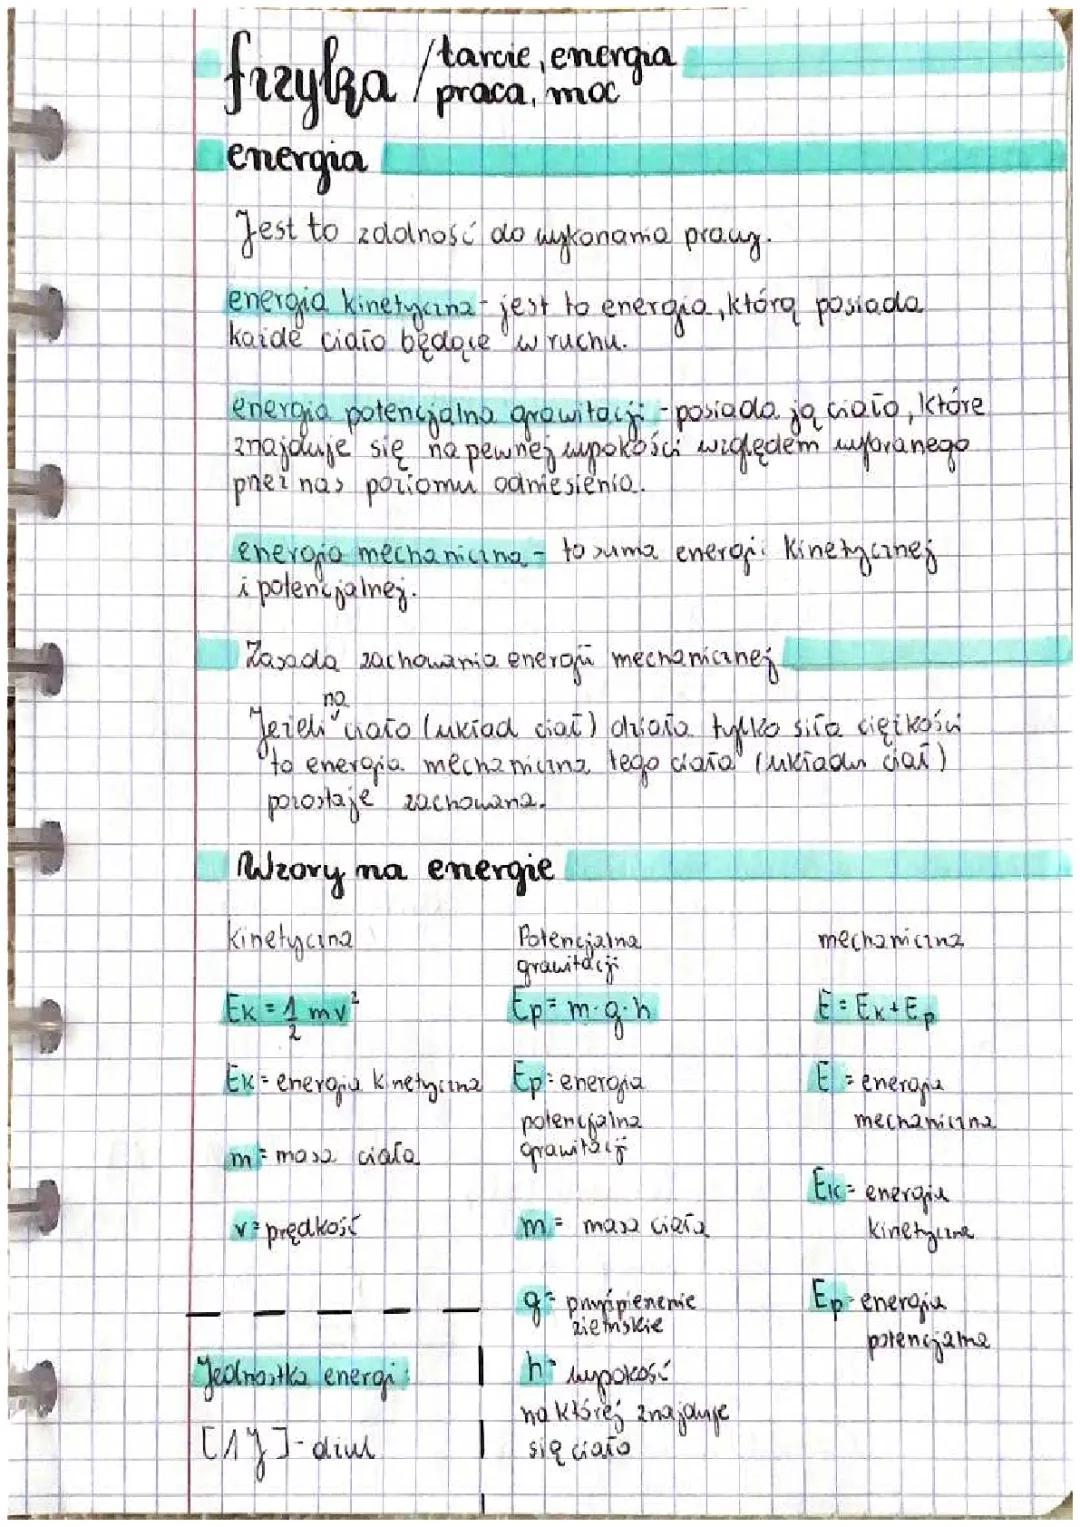 fizyka / tarcie, energia
praca, moc
energia
Jest to zdolność do wykonania pracy.
energia kinetyczna - jest to energia, którą posiada
każde ciało będące w ruchu.
energia potencjalna grawitacji - posiada ją ciało, które
znajduje się na pewnej wysokości względem wybranego
przez nas poziomu odniesienia.
energia mechaniczna - to suma energii kinetycznej
i potencjalnej.
Zasada zachowania energii mechanicznej
na
Jeżeli ciało (układ ciał) działa tylko siła ciężkości
to energia mechaniczna tego ciała (układu ciał)
pozostaje zachowana.
Wzory na energie
kinetyczna Potencjalna mechaniczna
grawitacji
Ek = 1/2 mv² Ep = m·g·h E = Ek + Ep
Ek = energia kinetyczna Ep = energia E = energia
potencjalna mechaniczna
m = masa ciała grawitacji
Ek = energia
v = prędkość m = masa ciała kinetyczna
g = przyspieszenie Ep = energia
ziemskie
potencjalna
Jednostka energi: h = wysokość
na której znajduje
[1J] - dżul się ciało